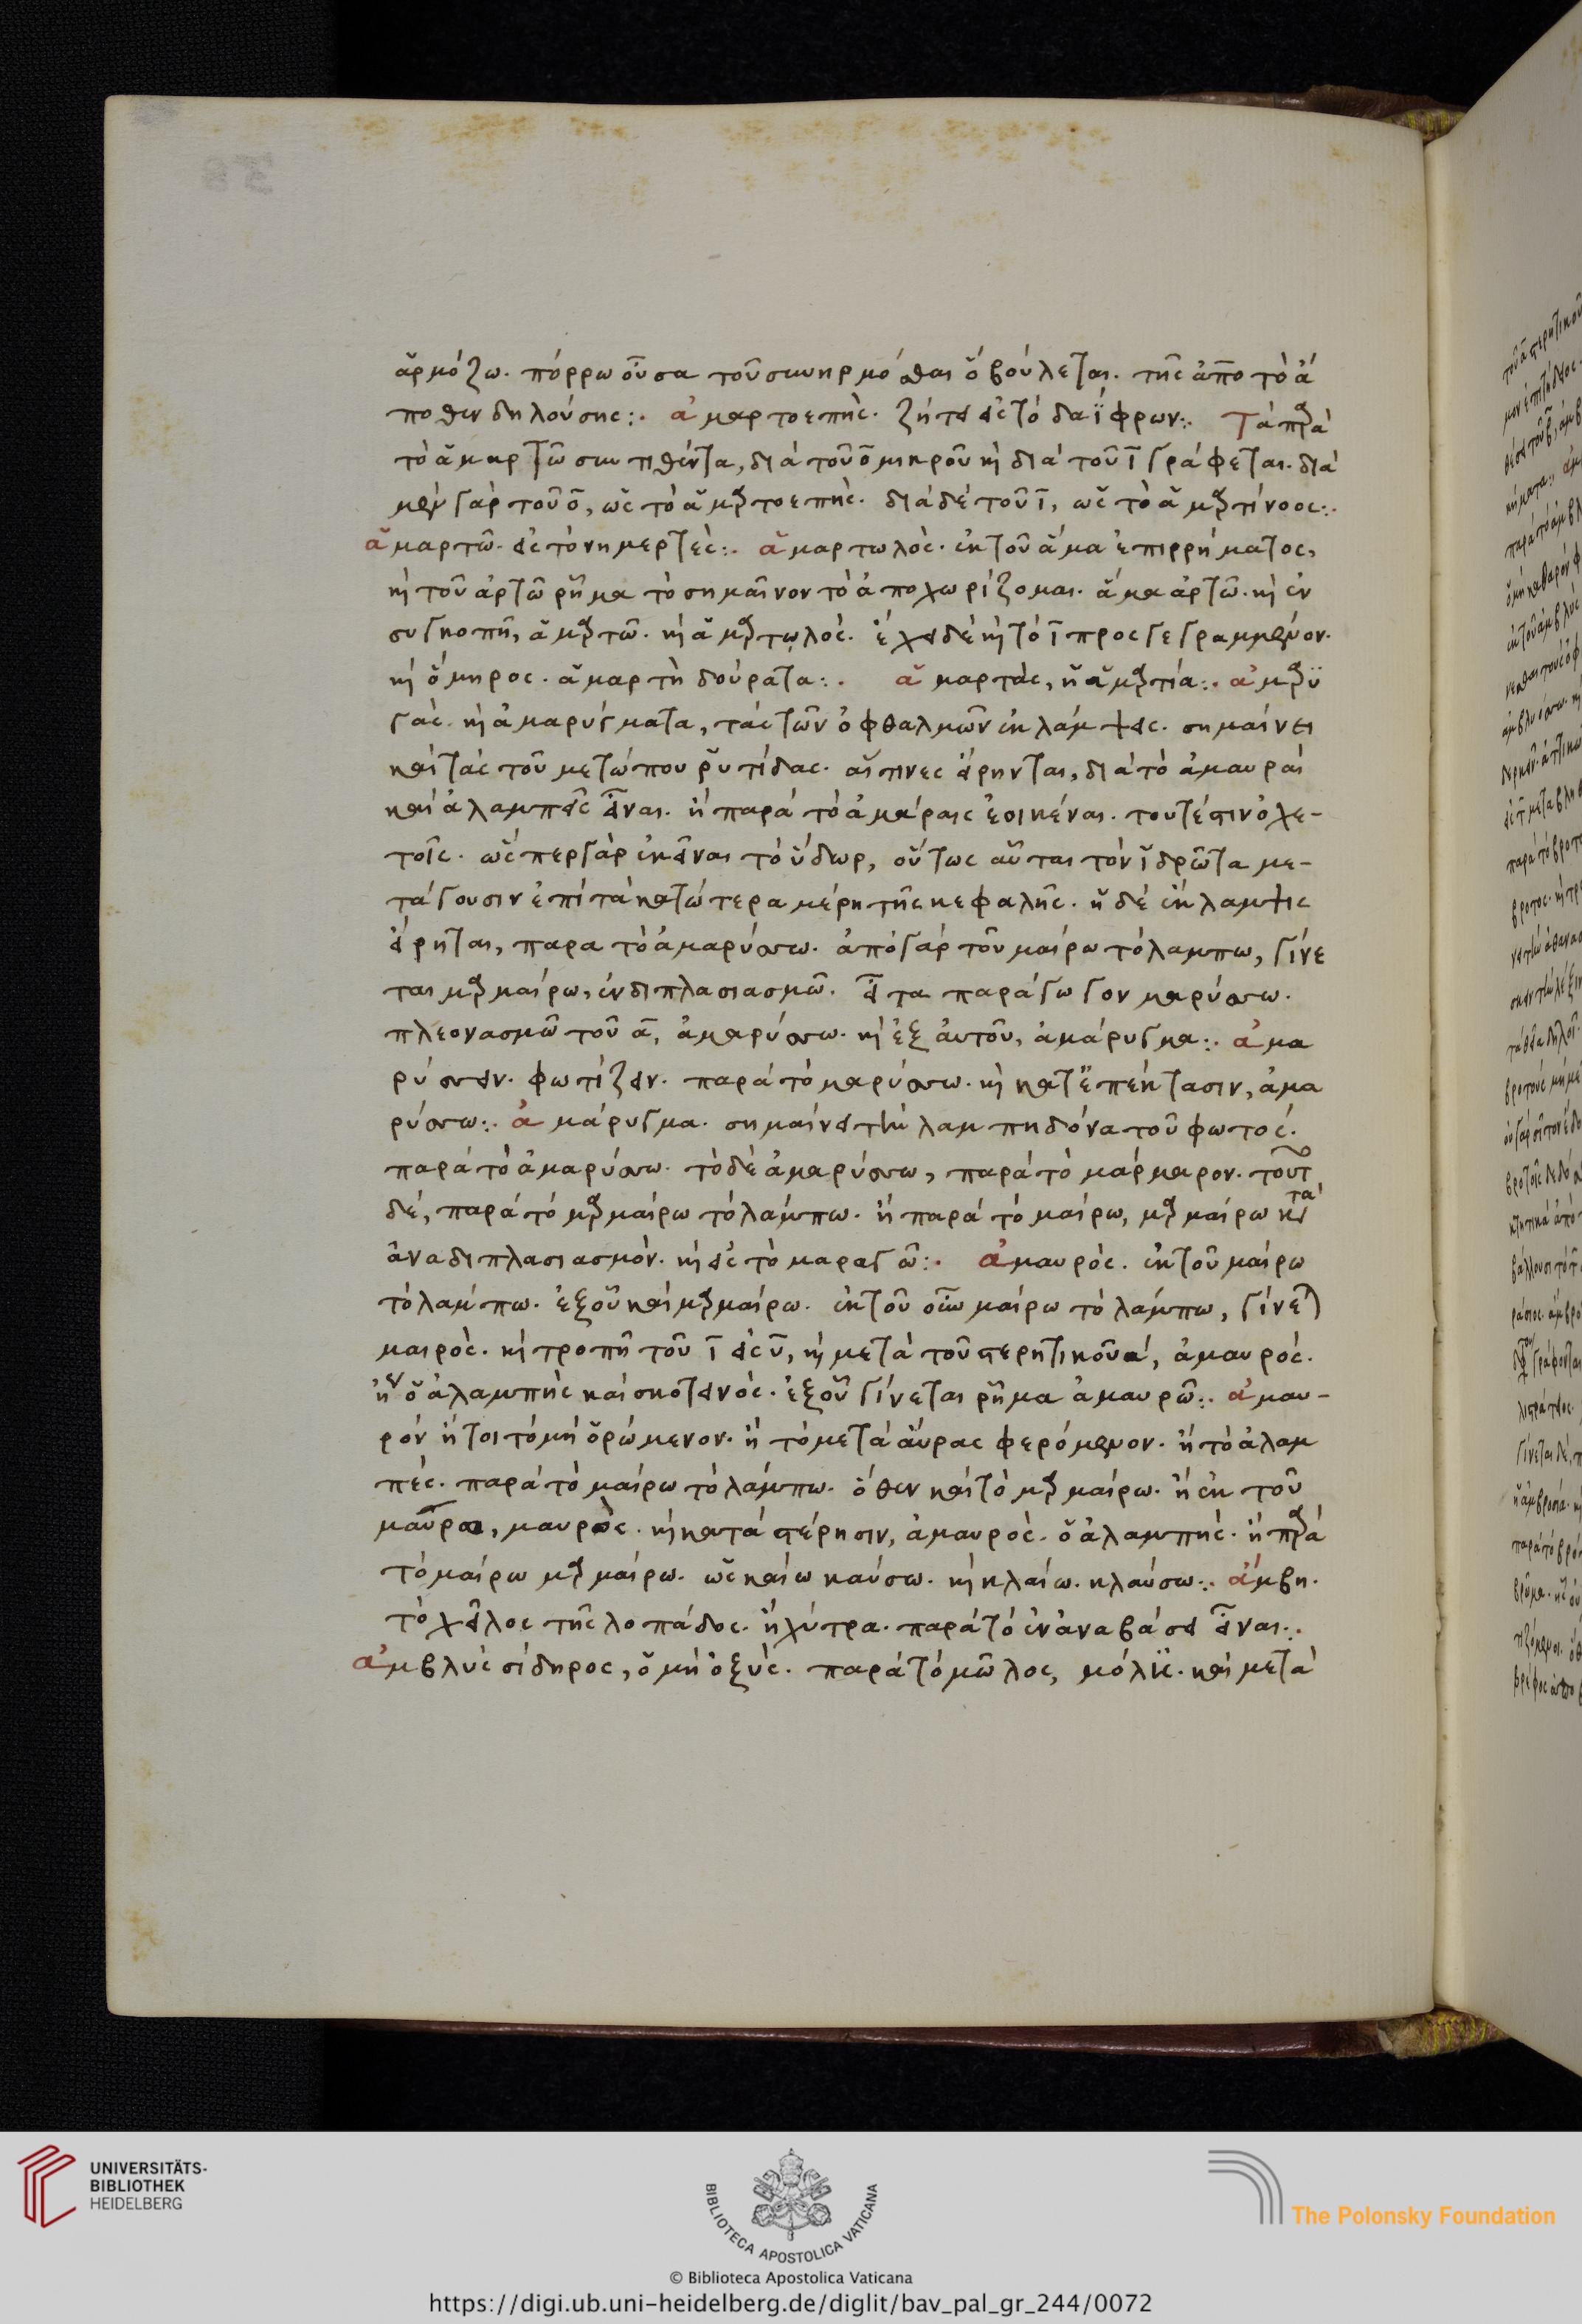 ἁρμόζω. πόρρω οὖσα τοῦ συνηρμόσθαι ὃ βούλεται. τῆς ἀπο τὸ ἀ
ποθὲν δηλούσης:. ἁμαρτοεπής. ζήτει εἰς τὸ δαΐφρων:. Τὰ παρὰ
τὸ ἁμαρτῶ συντιθέντα, διὰ τοῦ ο μικροῦ κὶ διὰ τοῦ ϊ γράφεται. διὰ
μὲν γὰρ τοῦ ο, ὡς τὸ ἁμαρτοεπής. διὰ δὲ τοῦ ϊ, ὡς τὸ ἁμαρτίνοος:.
ἁμαρτῶ. εἰς τὸ νημερτές:. ἁμαρτωλός. ἐκ τοῦ ἅμα ἐπιρρήματος,
κὶ τοῦ ἀρτῶ ῥῆμα τὸ σημαῖνον τὸ ἀποχωρίζομαι. ἅμα ἀρτῶ. κὶ ἐν
συγκοπῇ, ἁμαρτῶ. κὶ ἁμαρτωλός. ἔχει δὲ κὶ τὸ ϊ προσγεγραμμένον.
κὶ ὅμηρος. ἁμαρτὴ δούρατα:. ἁμαρτὰς, ἡ ἁμαρτία:. ἀμαρυ
γάς. κὶ ἀμαρύγματα, τὰς τῶν ὀφθαλμῶν ἐκλάμψεις. σημαίνει
καὶ τὰς τοῦ μετώπου ῥυτίδας. αἵτινες εἴρηνται, διὰ τὸ ἀμαυραὶ
καὶ ἀλαμπεῖς εἶναι. ἢ παρὰ τὸ ἀμάραις ἐοικέναι. τουτέστιν ὀχε-
τοῖς. ὥσπερ γὰρ ἐκεῖναι τὸ ὕδωρ, οὕτως αὗται τὸν ἱδρῶτα με-
τάγουσιν ἐπὶ τὰ κατώτερα μέρη τῆς κεφαλῆς. ἡ δὲ ἔκλαμψις
εἴρηται, παρα τὸ ἀμαρύσσω. ἀπὸ γὰρ τοῦ μαίρω τὸ λαμπω, γίνε
ται μαρμαίρω, ἐν διπλασιασμῶ. εἶτα παράγωγον μαρύσσω.
πλεονασμῶ τοῦ α, ἀμαρύσσω. κὶ ἐξ αὐτοῦ, ἀμάρυγμα:. ἀμα
ρύσσειν. φωτίζειν. παρὰ τὸ μαρύσσω. κὶ κατ' ἐπέκτασιν, ἀμα
ρύσσω:. ἀμάρυγμα. σημαίνει τὴν λαμπηδόνα τοῦ φωτός.
παρὰ τὸ ἀμαρύσσω. τὸ δὲ ἀμαρύσσω, παρὰ τὸ μάρμαρον. τοῦτο
δὲ, παρὰ τὸ μαρμαίρω τὸ λάμπω. ἢ παρὰ τὸ μαίρω, μαρμαίρω κατὰ
ἀναδιπλασιασμόν. κὶ εἰς τὸ μαραγῶ:. ἀμαυρός. ἐκ τοῦ μαίρω
τὸ λάμπω. ἐξ οὗ καὶ μαρμαίρω. ἐκ τοῦ οὖν μαίρω τὸ λάμπω, γίνεται
μαιρός. κὶ τροπῇ τοῦ ϊ εἰς υ, κὶ μετὰ τοῦ στερητικοῦ α, ἀμαυρός.
ἤγουν ὁ ἀλαμπὴς καὶ σκοτεινός. ἐξ οὗ γίνεται ῥῆμα ἀμαυρῶ:. ἀμαυ-
ρόν ἤτοι τὸ μὴ ὁρώμενον. ἢ τὸ μετὰ αὔρας φερόμενον. ἢ τὸ ἀλαμ
πές. παρὰ τὸ μαίρω τὸ λάμπω. ὅθεν καὶ τὸ μαρμαίρω. ἢ ἐκ τοῦ
μαῦρος, μαυρός. κὶ κατὰ στέρησιν, ἀμαυρός. ὁ ἀλαμπής. ἢ παρὰ
τὸ μαίρω μαρμαίρω. ὡς καίω καύσω. κὶ κλαίω. κλαύσω:. ἄμβη.
τὸ χεῖλος τῆς λοπάδος. ἢ χύτρα. παρὰ τὸ ἐν ἀναβάσει εἶναι:.
ἀμβλὺς σίδηρος, ὁ μὴ ὀξύς. παρὰ τὸ μῶλος, μόλϊς. καὶ μετὰ
UNIVERSITÄTS-
BIBLIOTHEK
HEIDELBERG
BIBLIOTECA APOSTOLICA VATICANA
The Polonsky Foundation
© Biblioteca Apostolica Vaticana
https://digi.ub.uni-heidelberg.de/diglit/bav_pal_gr_244/0072